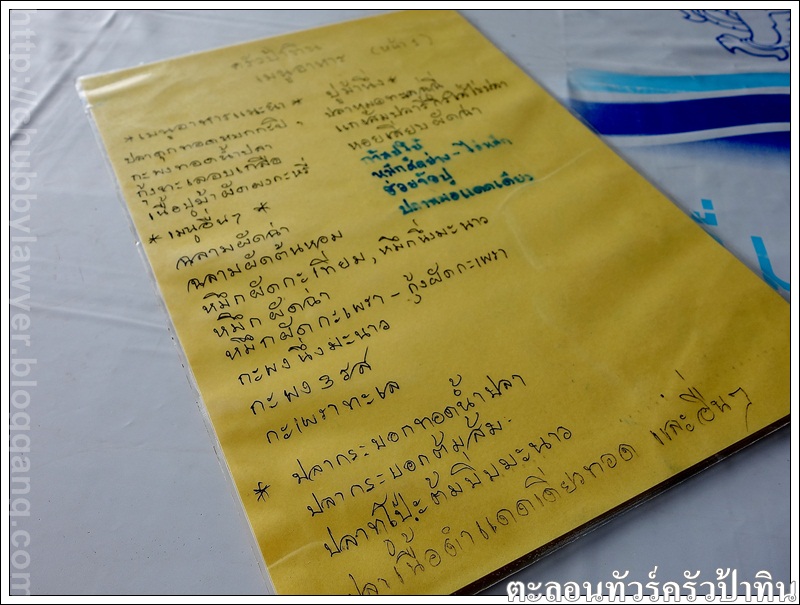 ครัวป้าทิน
เมนูอาหาร (หน้า 1)
* เมนูอาหารแนะนำ *
ปลาดุกทอดหมกกะปิ
กะพงทอดน้ำปลา
กุ้งทะเลอบเกลือ
เนื้อปูม้าผัดผงกะหรี่
* เมนูอื่นๆ *
ปูม้านึ่ง *
หอยเสียบผัดฉ่า
หมึกสดย่าง - ไข่หมึก
ฮ่อยจ๊อปู
ปลาหมอแดดเดียว
ฉลามผัดฉ่า
ฉลามผัดต้นหอม
หมึกผัดกะเทียม, หมึกนึ่งมะนาว
หมึกผัดฉ่า
หมึกผัดกะเพรา - กุ้งผัดกะเพรา
กะพงนึ่งมะนาว
กะพง 3 รส
กะเพราทะเล
* ปลากระบอกทอดน้ำปลา
ปลากระบอกต้มส้ม
ปลาทูโป๊ะต้มบีบมะนาว
ปลาเนื้อดำแดดเดียวทอด และอื่นๆ
http://chubbylawyer.bloggang.com
ตะลอนทัวร์ครัวป้าทิน